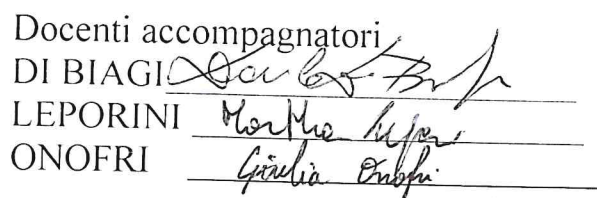 Docenti accompagnatori
DI BIAGI
LEPORINI Martha
ONOFRI Giulia Onofri